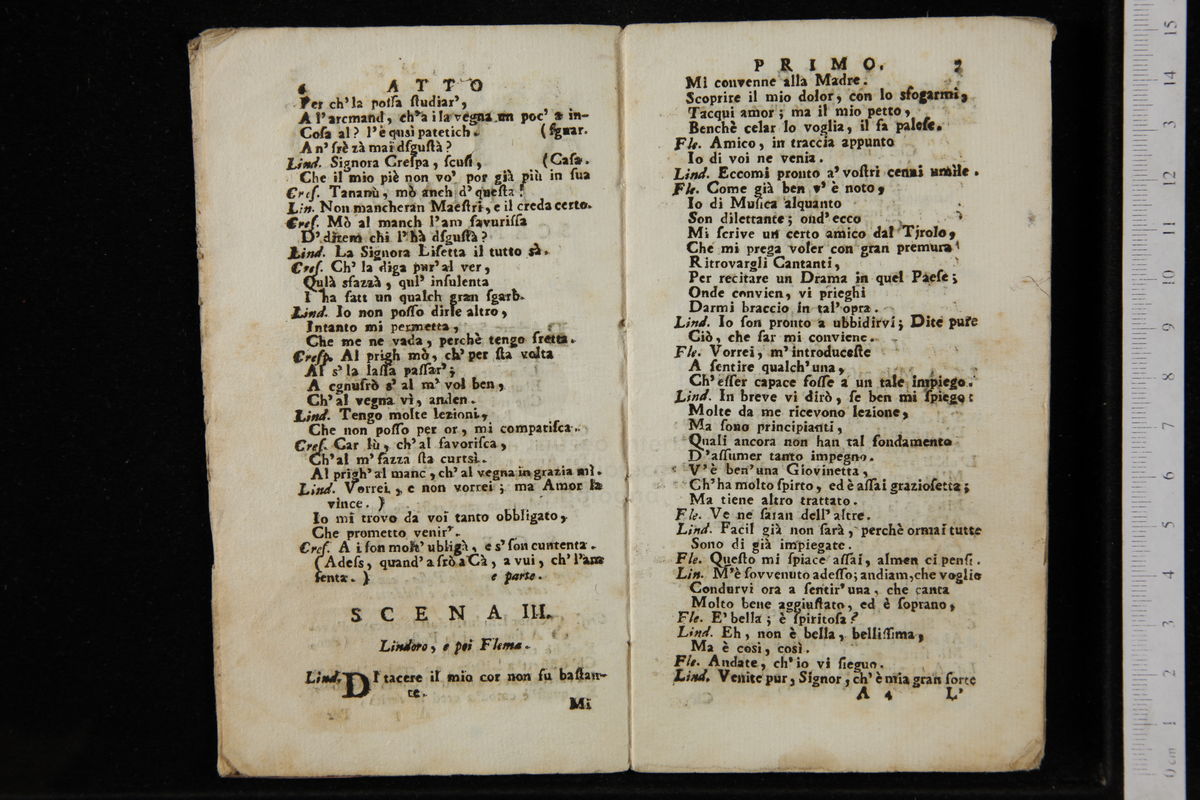 6 ATTO
Per ch'la possa studiar',
A l'arcmand, ch'a i la vegna un poc' a in-
Cosa al? l'è qusì patetich. (sgnar.
An' srè zà mai dsgustà?
Lind. Signora Crespa, scusi, (Casa.
Che il mio piè non vo' por già più in sua
Cres. Tananù, mò anch d'questa!
Lin. Non mancheran Maestri, e il creda certo.
Cres. Mò al manch l'am favurissa
D'direm chi l'hà dsgustà?
Lind. La Signora Lisetta il tutto sà.
Cres. Ch' la diga pur'al ver,
Qulà sfazzà, qul' insulenta
I ha fatt un qualch gran sgarb.
Lind. Io non posso dirle altro,
Intanto mi permetta,
Che me ne vada, perchè tengo fretta.
Cresp. Al prigh mò, ch'per sta volta
Al s'la lassa passar';
A cgnusrò s' al m' vol ben,
Ch'al vegna vì, anden.
Lind. Tengo molte lezioni,
Che non posso per or, mi compatisca.
Cres. Car lù, ch'al favorisca,
Ch'al m'fazza sta curtsì.
Al prigh'al manc, ch'al vegna in grazia mì.
Lind. Vorrei, e non vorrei; ma Amor la
vince. )
Io mi trovo da voi tanto obbligato,
Che prometto venir'.
Cres. A i son molt' ubligà, e s'son cuntenta.
(Adess, quand' a srò a Cà, a vui, ch'l'am
senta. ) e parte.
SCENA III.
Lindoro, e poi Flema.
Lind. DI tacere il mio cor non fu bastan-
te.
Mi
PRIMO. 7
Mi convenne alla Madre.
Scoprire il mio dolor, con lo sfogarmi,
Tacqui amor; ma il mio petto,
Benchè celar lo voglia, il fa palese.
Fle. Amico, in traccia appunto
Io di voi ne venia.
Lind. Eccomi pronto a' vostri cenni umile.
Fle. Come già ben v' è noto,
Io di Musica alquanto
Son dilettante; ond' ecco
Mi scrive un certo amico dal Tirolo,
Che mi prega voler con gran premura
Ritrovargli Cantanti,
Per recitare un Drama in quel Paese;
Onde convien, vi prieghi
Darmi braccio in tal'opra.
Lind. Io son pronto a ubbidirvi; Dite pure
Ciò, che far mi conviene.
Fle. Vorrei, m'introduceste
A sentire qualch'una,
Ch'esser capace fosse a un tale impiego.
Lind. In breve vi dirò, se ben mi spiego:
Molte da me ricevono lezione,
Ma sono principianti,
Quali ancora non han tal fondamento
D'assumer tanto impegno.
V'è ben'una Giovinetta,
Ch'ha molto spirto, ed è assai graziosetta;
Ma tiene altro trattato.
Fle. Ve ne saran dell'altre.
Lind. Facil già non sarà, perchè ormai tutte
Sono di già impiegate.
Fle. Questo mi spiace assai, almen ci pensi.
Lin. M'è sovvenuto adesso; andiam, che voglio
Condurvi ora a sentir'una, che canta
Molto bene aggiustato, ed è soprano,
Fle. E' bella; è spiritosa?
Lind. Eh, non è bella, bellissima,
Ma è così, così.
Fle. Andate, ch'io vi sieguo.
Lind. Venite pur, Signor, ch'è mia gran sorte
A 4 L'